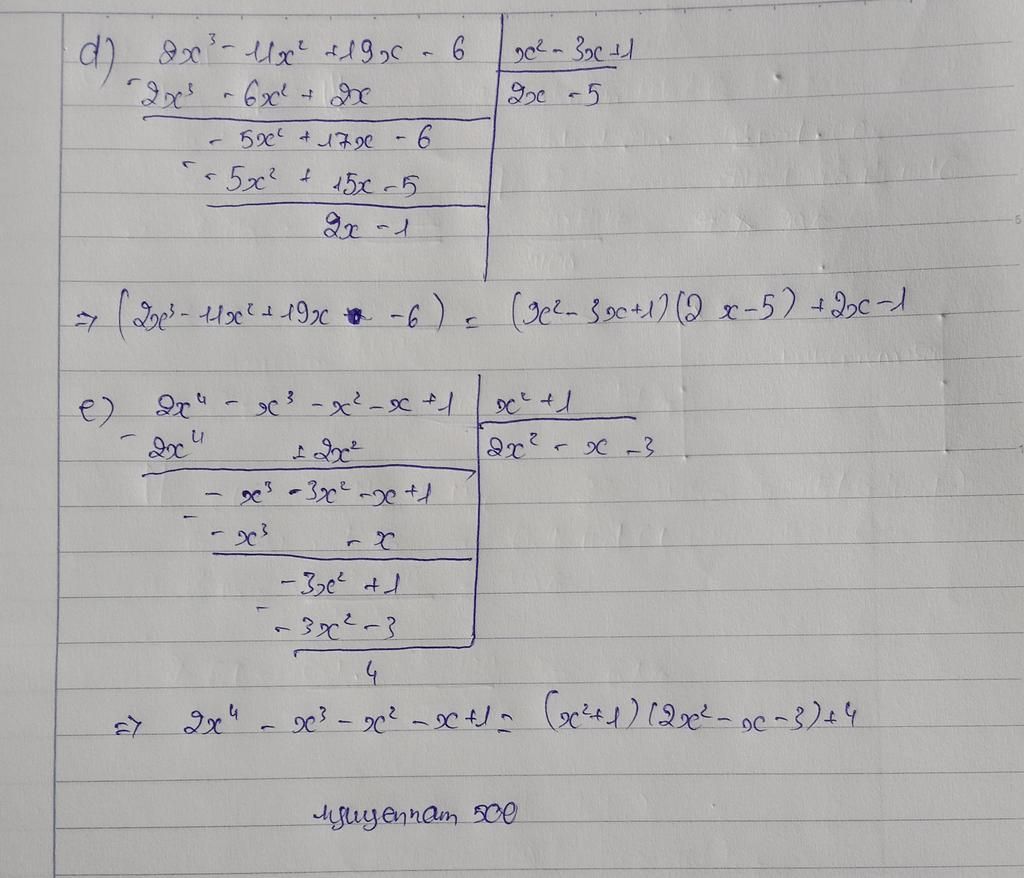 d) 2x³ - 11x² + 19x - 6 | x² - 3x + 1
- 2x³ - 6x² + 2x | 2x - 5
- 5x² + 17x - 6
- - 5x² + 15x - 5
2x - 1
=> (2x³ - 11x² + 19x - 6) = (x² - 3x + 1)(2x - 5) + 2x - 1
e) 2x⁴ - x³ - x² - x + 1 | x² + 1
- 2x⁴ + 2x² | 2x² - x - 3
- x³ - 3x² - x + 1
- - x³ - x
- 3x² + 1
- - 3x² - 3
4
=> 2x⁴ - x³ - x² - x + 1 = (x² + 1)(2x² - x - 3) + 4